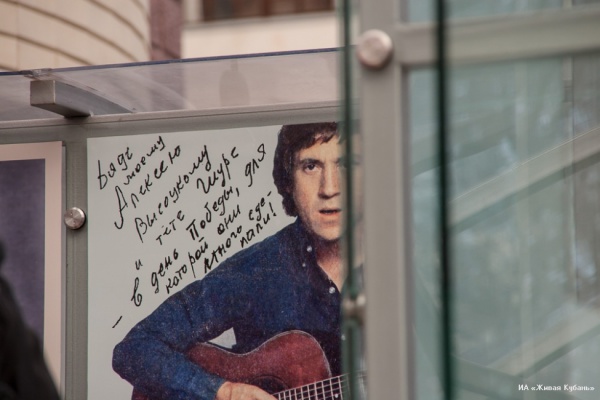 Дяде
моему
Алексею
Высоцкому
и тёте Шуре
– в день Победы, для
которой они
много сде-
лали!
ИА «Живая Кубань»